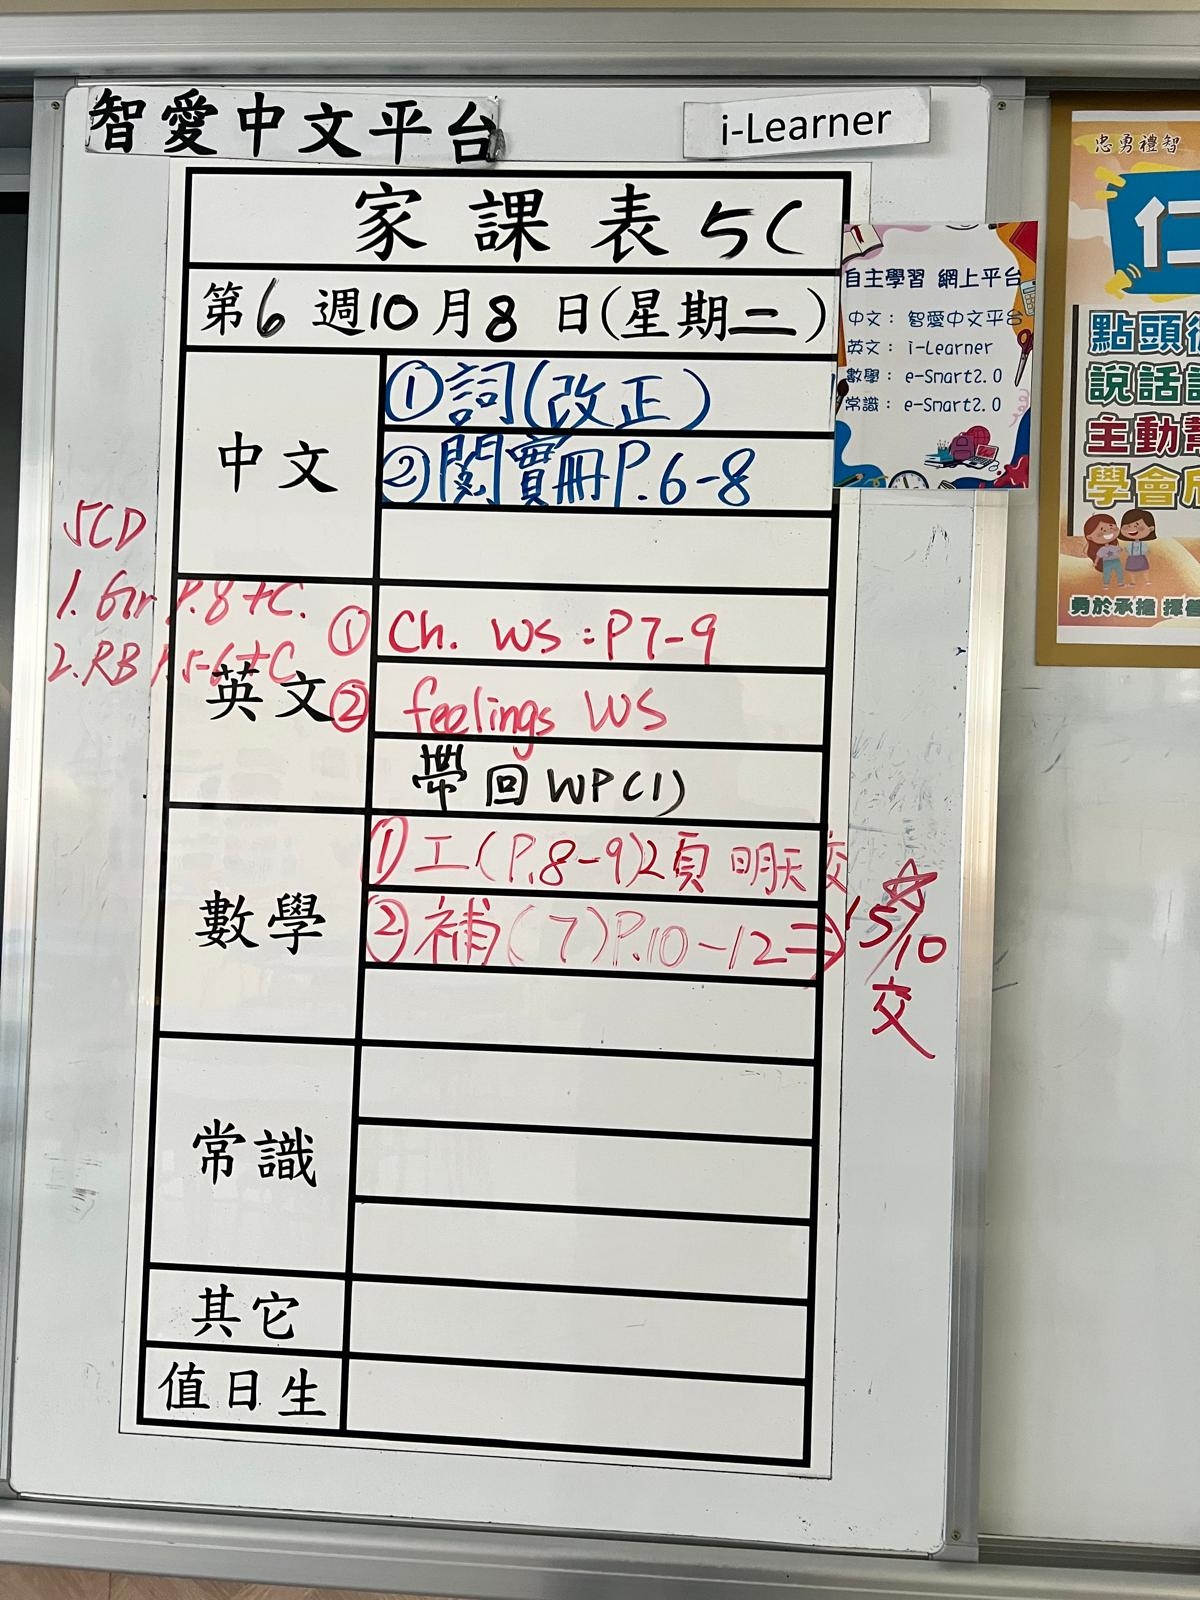 智愛中文平台
i-Learner
家課表 5C
第6週10月8日(星期二)
中文
①詞(改正)
②閱實冊P.6-8
5CD
1. Gr P.8+C.
2. RB P.5-6+C
英文
① Ch. WS : P7-9
② feelings WS
帶回WP(1)
數學
①工(P.8-9)2頁 明天交
②補(7)P.10-12⇒15/10
交
常識
其它
值日生
自主學習 網上平台
中文： 智愛中文平台
英文： i-Learner
數學： e-Smart2.0
常識： e-Smart2.0
忠勇禮智
仁
點頭
說話
主動
學會
勇於承擔